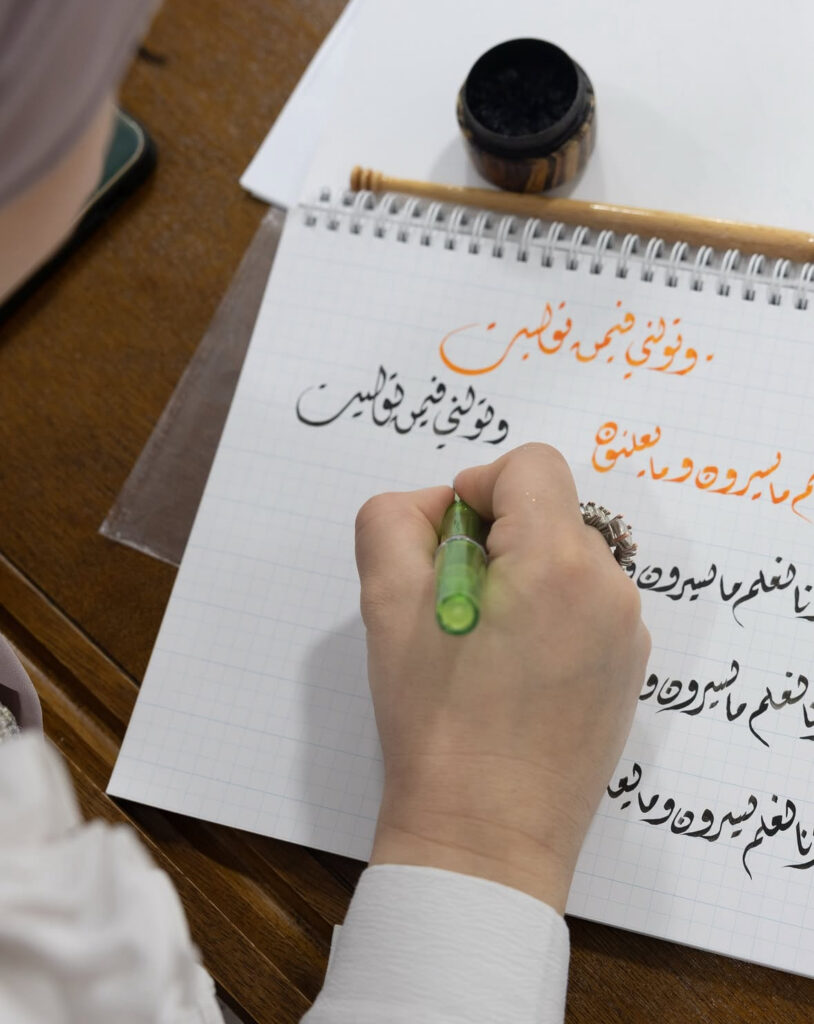 وتولني فيمن توليت
وتولني فيمن توليت
ما يسرون وما يعلنون
نعلم ما يسرون و
نعلم ما يسرون و
نعلم ما يسرون وما